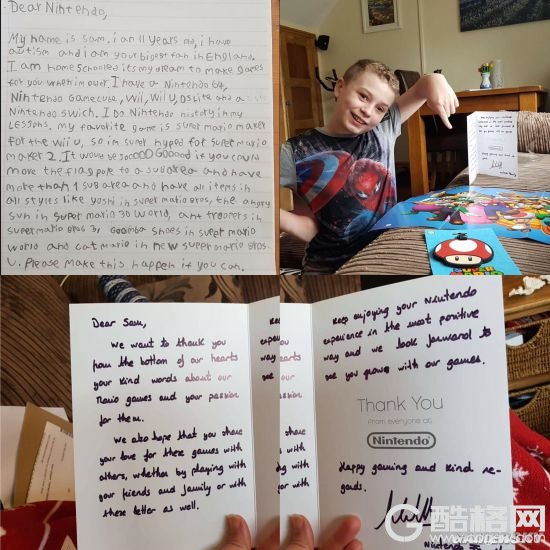 Dear Nintendo,
My name is sam. i an 11 years old, i have
autism and i am your biggest fan in England.
I am home schooled its my dream to make games
for you when im older. I have a Nintendo 64,
Nintendo Gamecube, Wii, Wii U, DS lite and a
Nintendo swich. I do Nintendo history in my
Lessons. My favorite game is super mario maker
for the wii u, so im super hyped for super mario
maker 2. It would be soooo Gooood if you could
move the flagpole to a subarea and have
more than 1 sub area and have all items in
all styles like yoshi in super mario bros, the angry
sun in super mario 3D world, ant troopers in
super mario bros 3, Goomba Shoes in super mario
world and cat mario in new super mario bros.
U. Please make this happen if you can.
Dear Sam,
We want to thank you
from the bottom of our hearts
your kind words about our
Mario games and your passion
for them.
We also hope that you share
your love for these games with
others, whether by playing with
your friends and family or with
these letter as well.
Keep enjoying your Nintendo
experience in the most positive
way and we look forward to
see you grow with our games.
Thank You
from everyone at
Nintendo
Happy gaming and kind re-
gards.
酷格网